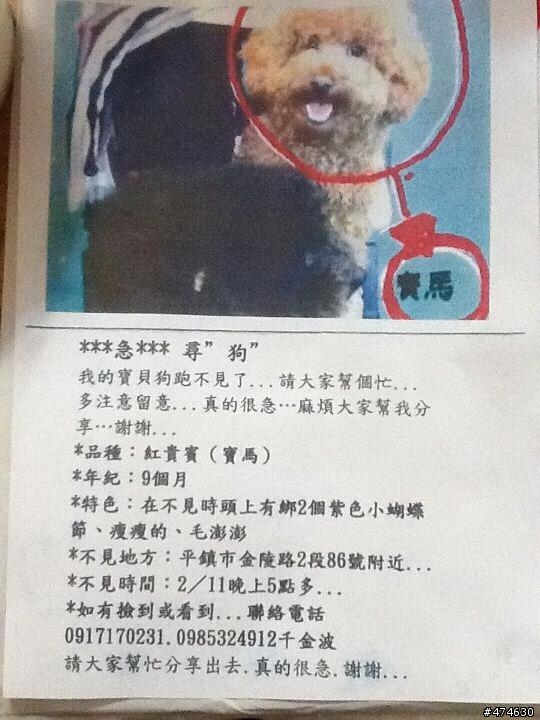 寶馬
***急*** 尋”狗”
我的寶貝狗跑不見了...請大家幫個忙...
多注意留意...真的很急…麻煩大家幫我分
享…謝謝...
*品種：紅貴賓（寶馬）
*年紀：9個月
*特色：在不見時頭上有綁2個紫色小蝴蝶
節、瘦瘦的、毛澎澎
*不見地方：平鎮市金陵路2段86號附近...
*不見時間：2／11晚上5點多...
*如有撿到或看到...聯絡電話
0917170231.0985324912千金波
請大家幫忙分享出去.真的很急.謝謝...
#474630